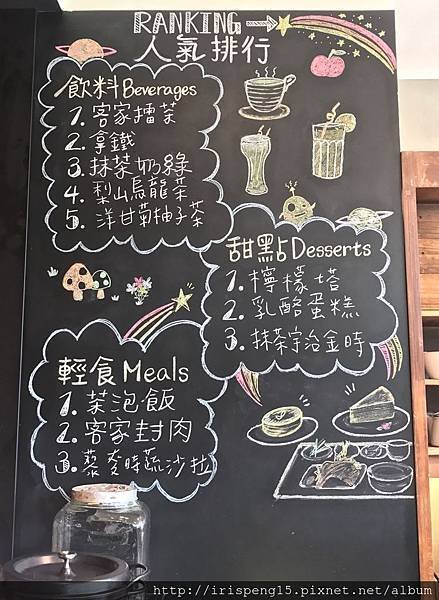 RANKING
人氣排行
飲料 Beverages
1. 客家擂茶
2. 拿鐵
3. 抹茶奶綠
4. 梨山烏龍茶
5. 洋甘菊柚子茶
甜點 Desserts
1. 檸檬塔
2. 乳酪蛋糕
3. 抹茶宇治金時
輕食 Meals
1. 茶泡飯
2. 客家封肉
3. 藜麥時蔬沙拉
http://irispeng15.pixnet.net/album